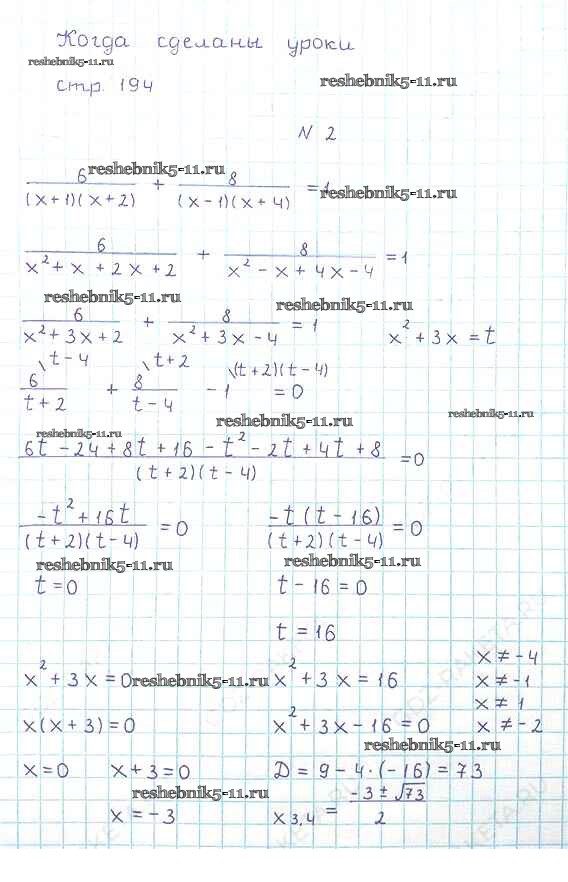 Когда сделаны уроки
reshebnik5-11.ru
reshebnik5-11.ru
стр. 194
N 2
reshebnik5-11.ru
6/((x+1)(x+2)) + 8/((x-1)(x+4)) = 1
reshebnik5-11.ru
6/(x²+x+2x+2) + 8/(x²-x+4x-4) = 1
reshebnik5-11.ru
reshebnik5-11.ru
6/(x²+3x+2) + 8/(x²+3x-4) = 1 x²+3x=t
\t-4 \t+2 \(t+2)(t-4)
6/(t+2) + 8/(t-4) - 1 = 0
reshebnik5-11.ru
reshebnik5-11.ru
reshebnik5-11.ru
(6t-24+8t+16-t²-2t+4t+8)/((t+2)(t-4)) = 0
(-t²+16t)/((t+2)(t-4)) = 0 (-t(t-16))/((t+2)(t-4)) = 0
reshebnik5-11.ru
reshebnik5-11.ru
t=0 t-16=0
t=16
x≠-4
x²+3x=0 reshebnik5-11.ru x²+3x=16 x≠-1
x≠1
x(x+3)=0 x²+3x-16=0 x≠-2
reshebnik5-11.ru
x=0 x+3=0 D=9-4·(-16)=73
reshebnik5-11.ru
x=-3 x3,4 = (-3±√73)/2